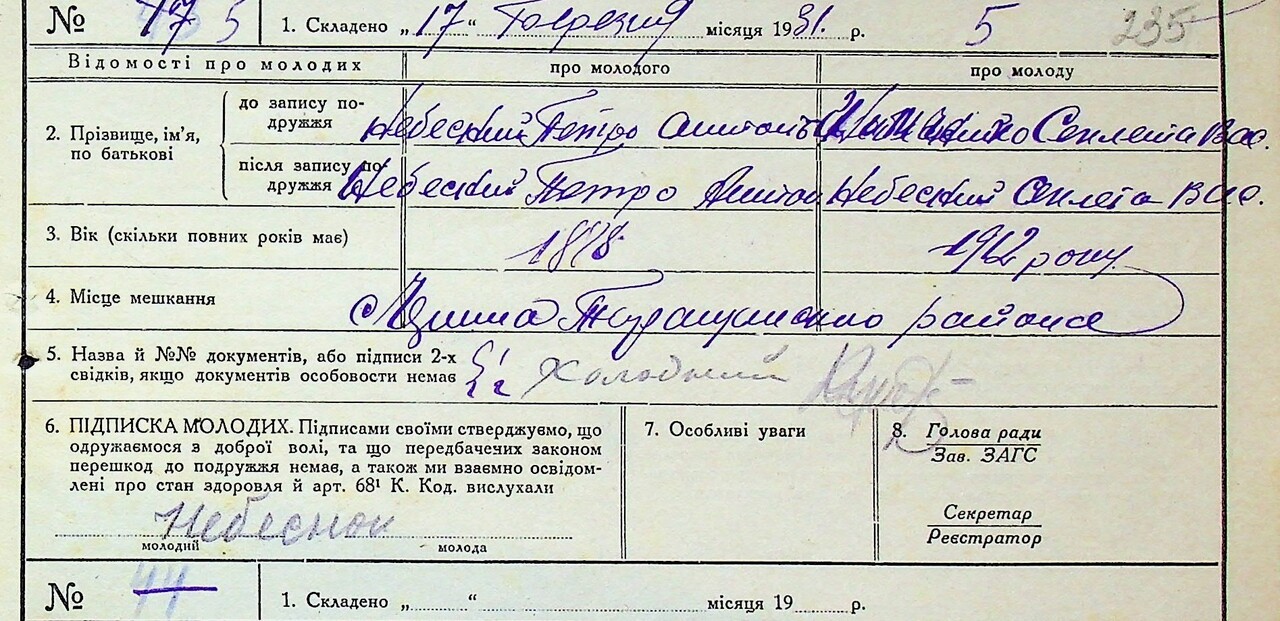 № 5 1. Складено „ 17 “ Березня місяця 1931. р. 5 235
Відомості про молодих про молодого про молоду
2. Прізвище, ім'я, по батькові
до запису подружжя Небеский Петро Антон Секлета Вас.
після запису подружжя Небеский Петро Антон Небеский Секлета Вас.
3. Вік (скільки повних років має) 1912 року
4. Місце мешкання района
5. Назва й №№ документів, або підписи 2-х Холодний
свідків, якщо документів особовости немає
6. ПІДПИСКА МОЛОДИХ. Підписами своїми стверджуємо, що
одружаємося з доброї волі, та що передбачених законом
перешкод до подружжя немає, а також ми взаємно освідом-
лені про стан здоров'я й арт. 68¹ К. Код. вислухали
молодий молода
7. Особливі уваги
8. Голова ради
Зав. ЗАГС
Секретар
Реєстратор
№ 44 1. Складено „ “ місяця 19 р.